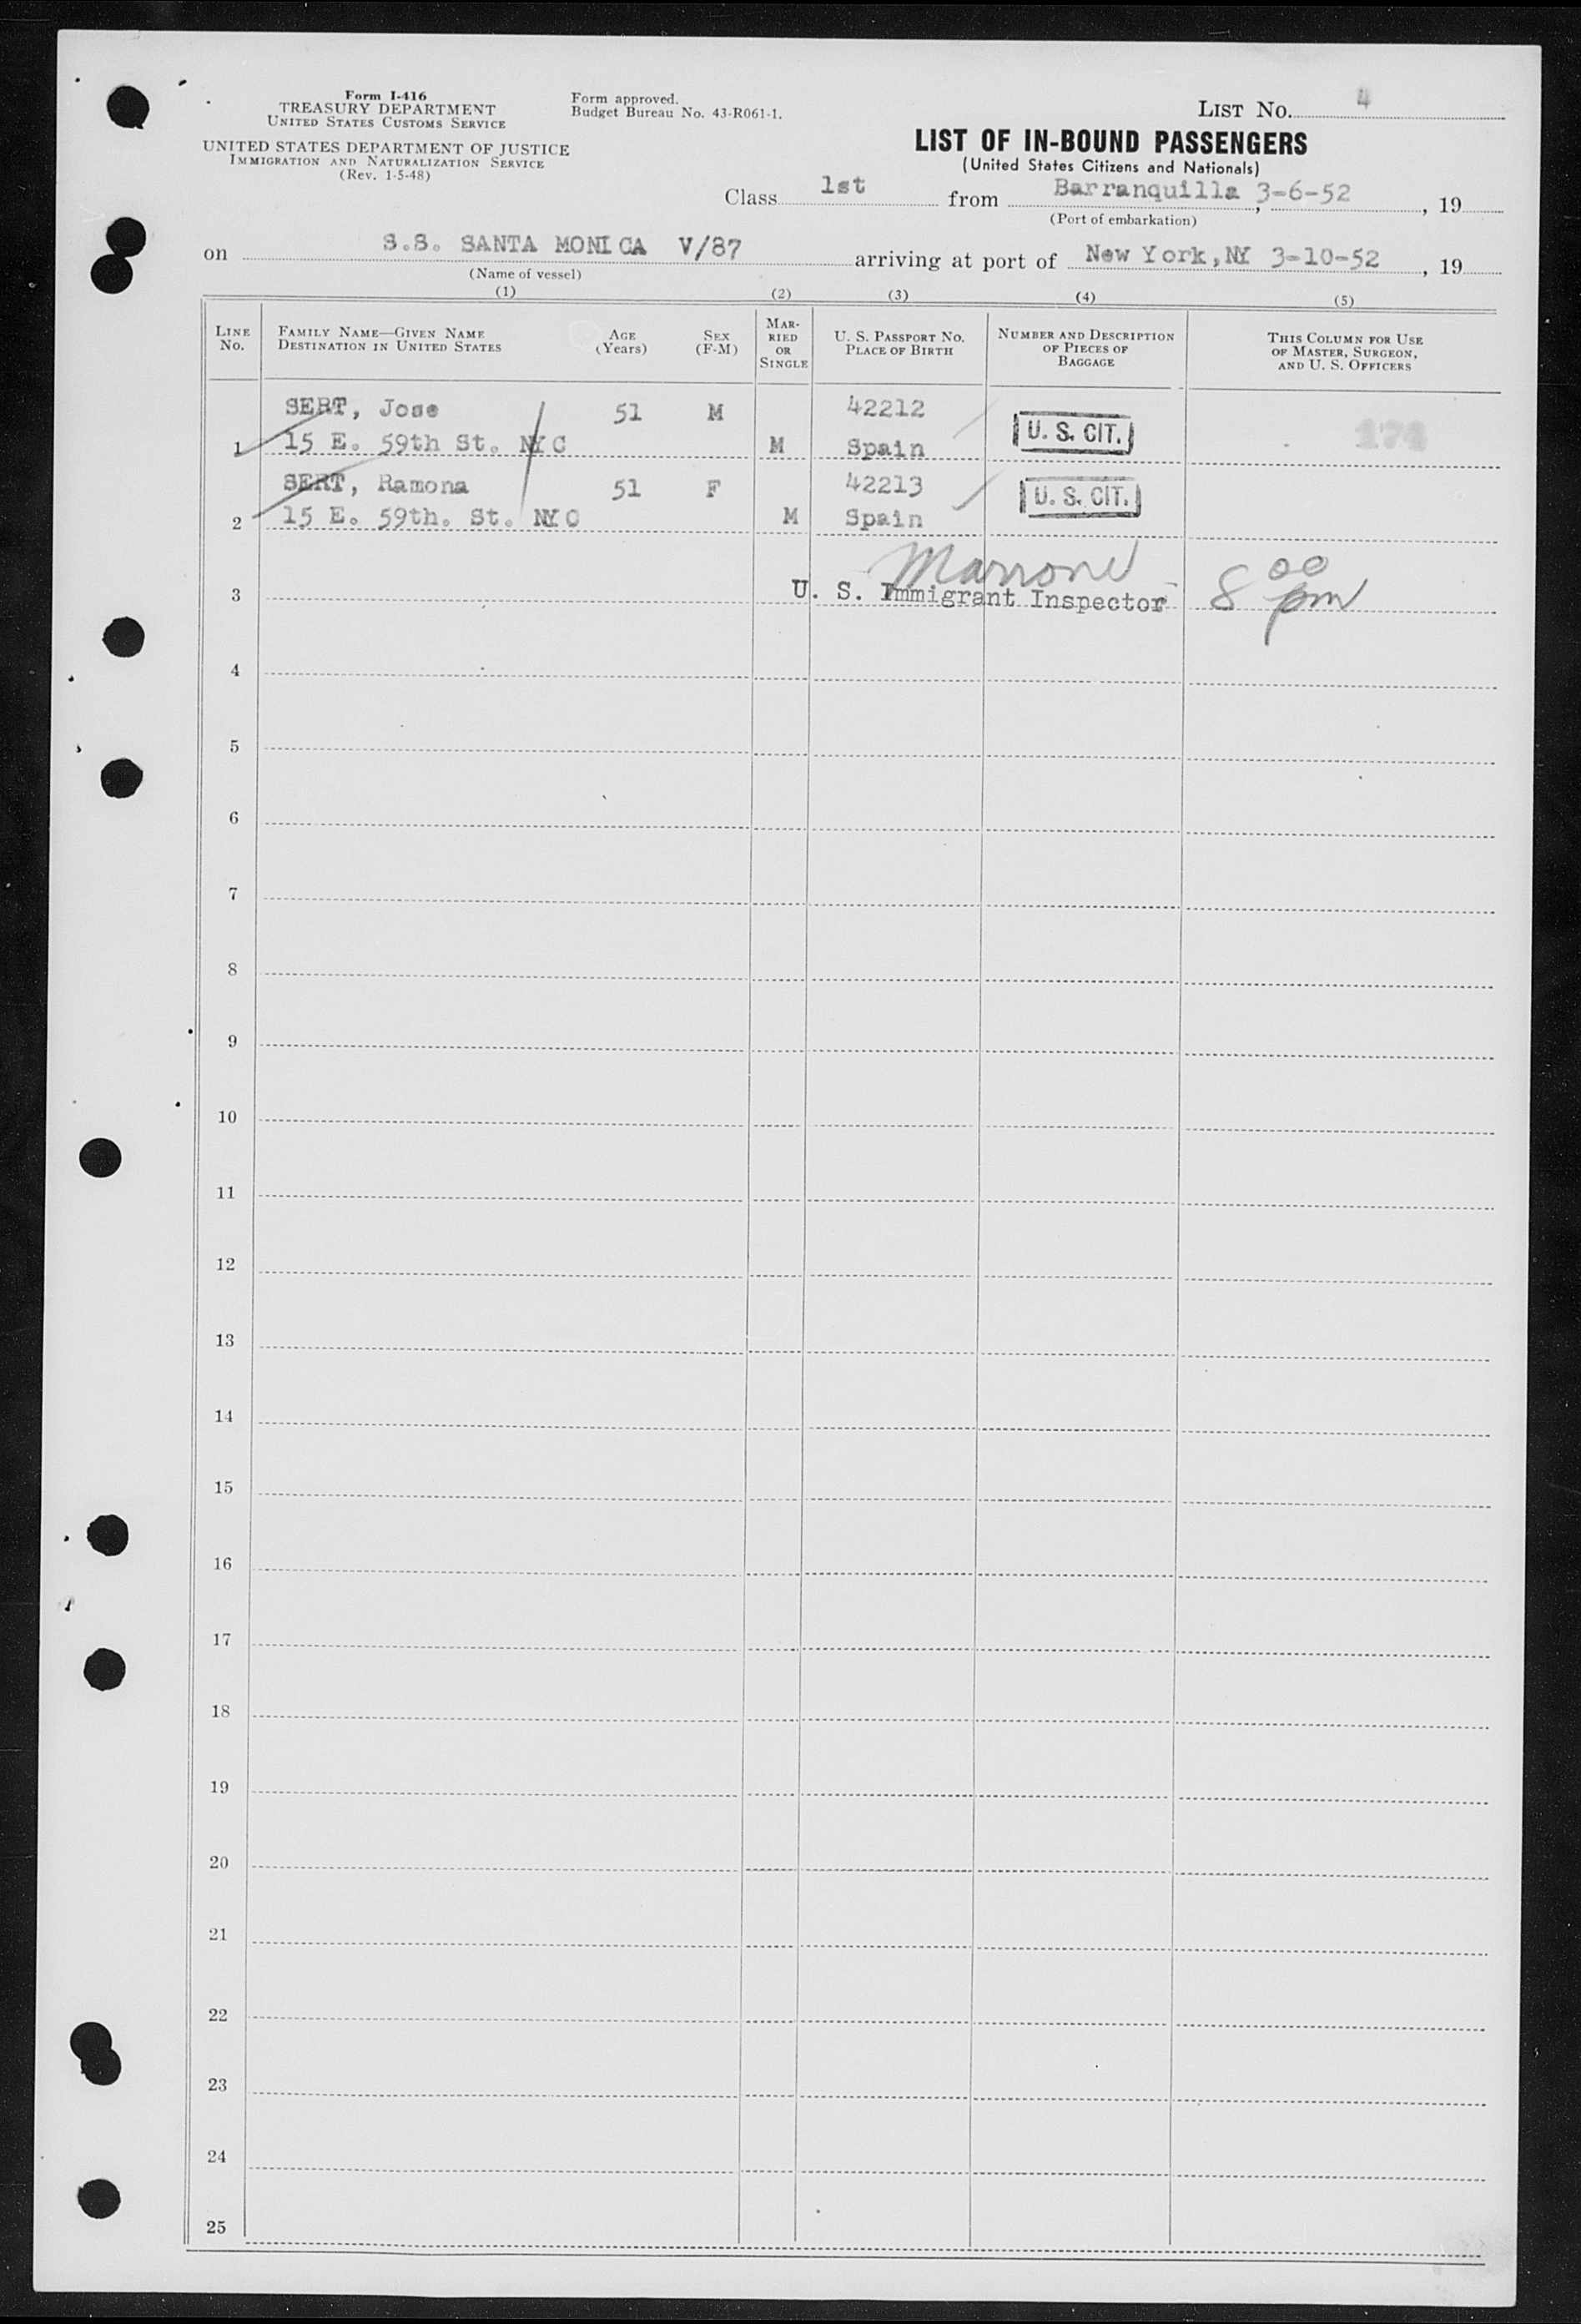 Form I-416
TREASURY DEPARTMENT
UNITED STATES CUSTOMS SERVICE
UNITED STATES DEPARTMENT OF JUSTICE
IMMIGRATION AND NATURALIZATION SERVICE
(Rev. 1-5-48)
Form approved.
Budget Bureau No. 43-R061-1.
LIST No. 4
LIST OF IN-BOUND PASSENGERS
(United States Citizens and Nationals)
Class 1st from Barranquilla 3-6-52, 19
(Port of embarkation)
on S.S. SANTA MONICA V/87 arriving at port of New York, NY 3-10-52, 19
(Name of vessel)
(1) (2) (3) (4) (5)
LINE No.
FAMILY NAME—GIVEN NAME
DESTINATION IN UNITED STATES
AGE (Years)
SEX (F-M)
MARRIED OR SINGLE
U. S. PASSPORT No.
PLACE OF BIRTH
NUMBER AND DESCRIPTION OF PIECES OF BAGGAGE
THIS COLUMN FOR USE OF MASTER, SURGEON, AND U. S. OFFICERS
SERT, Jose 51 M 42212
1 15 E. 59th St. NYC M Spain U. S. CIT. 174
SERT, Ramona 51 F 42213
2 15 E. 59th. St. NYC M Spain U. S. CIT.
Marrone
3 U. S. Immigrant Inspector 8 00 pm
4
5
6
7
8
9
10
11
12
13
14
15
16
17
18
19
20
21
22
23
24
25